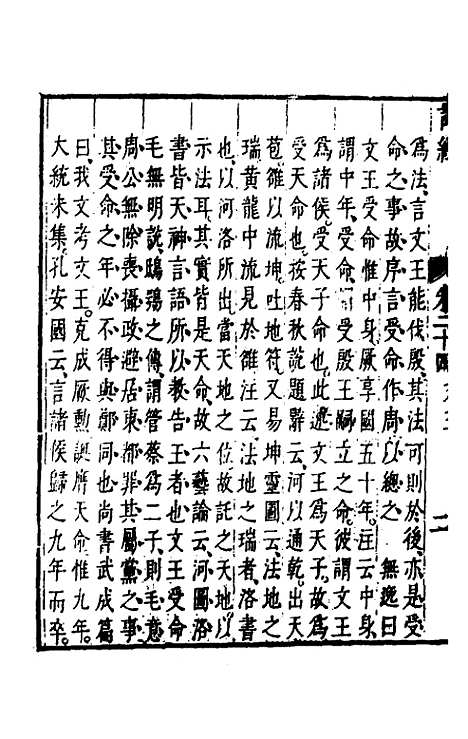 爲法言文王能伐殷其法可則於後亦是受
命之事故序言受命作周以總之 無逸曰
文王受命惟中身厥享國五十年注云中身
謂中年受命謂受殷王嗣立之命彼謂文王
爲諸侯受天子命也此述文王爲天子故爲
受天命也按春秋說題辭云河以通乾出天
苞雒以流坤吐地符又易坤靈圖云法地之
瑞黄龍中流見於雒注云法地之瑞者洛書
也以河洛所出當天地之位故託之天地以
示法耳其實皆是天命故六藝論云河圖洛
書皆天神言語所以教告王者也文王受命
毛無明說鴟鴞之傳謂管蔡爲二子則毛意
周公無除喪攝政避居東都罪其屬黨之事
其受命之年必不得與鄭同也尚書武成篇
曰我文考文王克成厥勲誕膺天命惟九年
大統未集孔安國云言諸侯歸之九年而卒
卷二十四